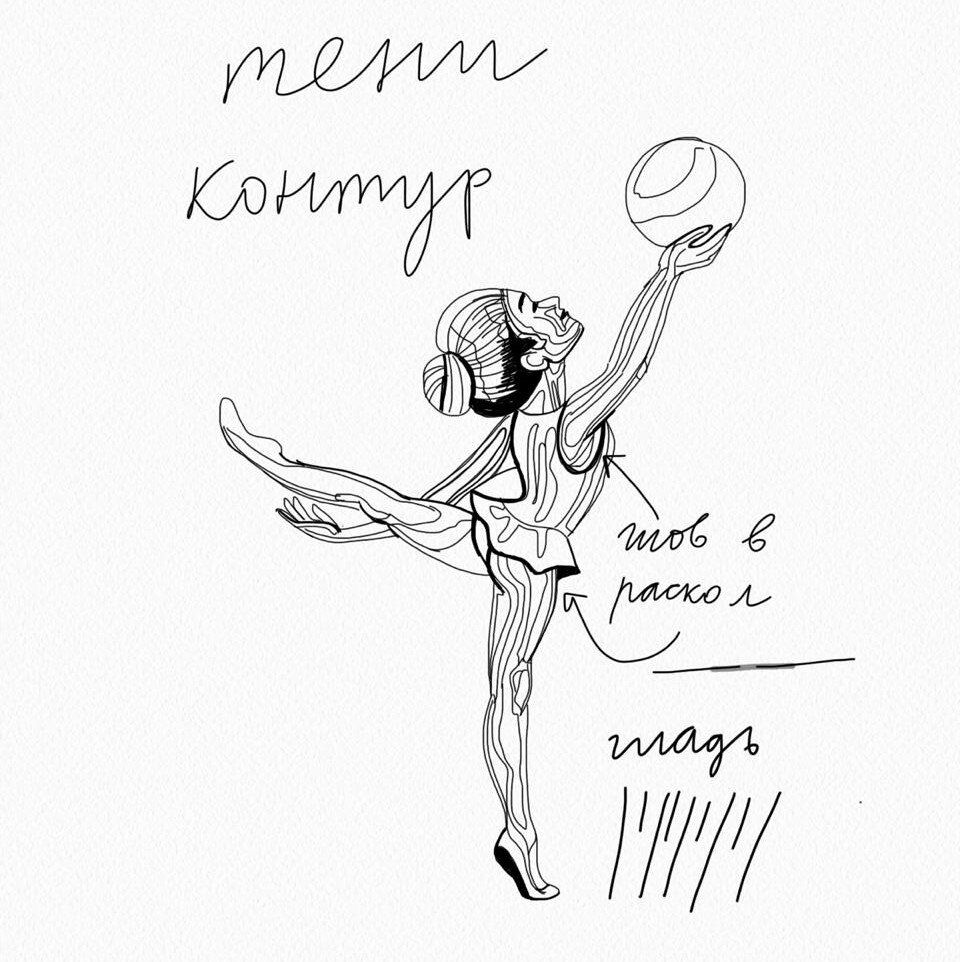 тени
контур
шов в
раскол
гладь